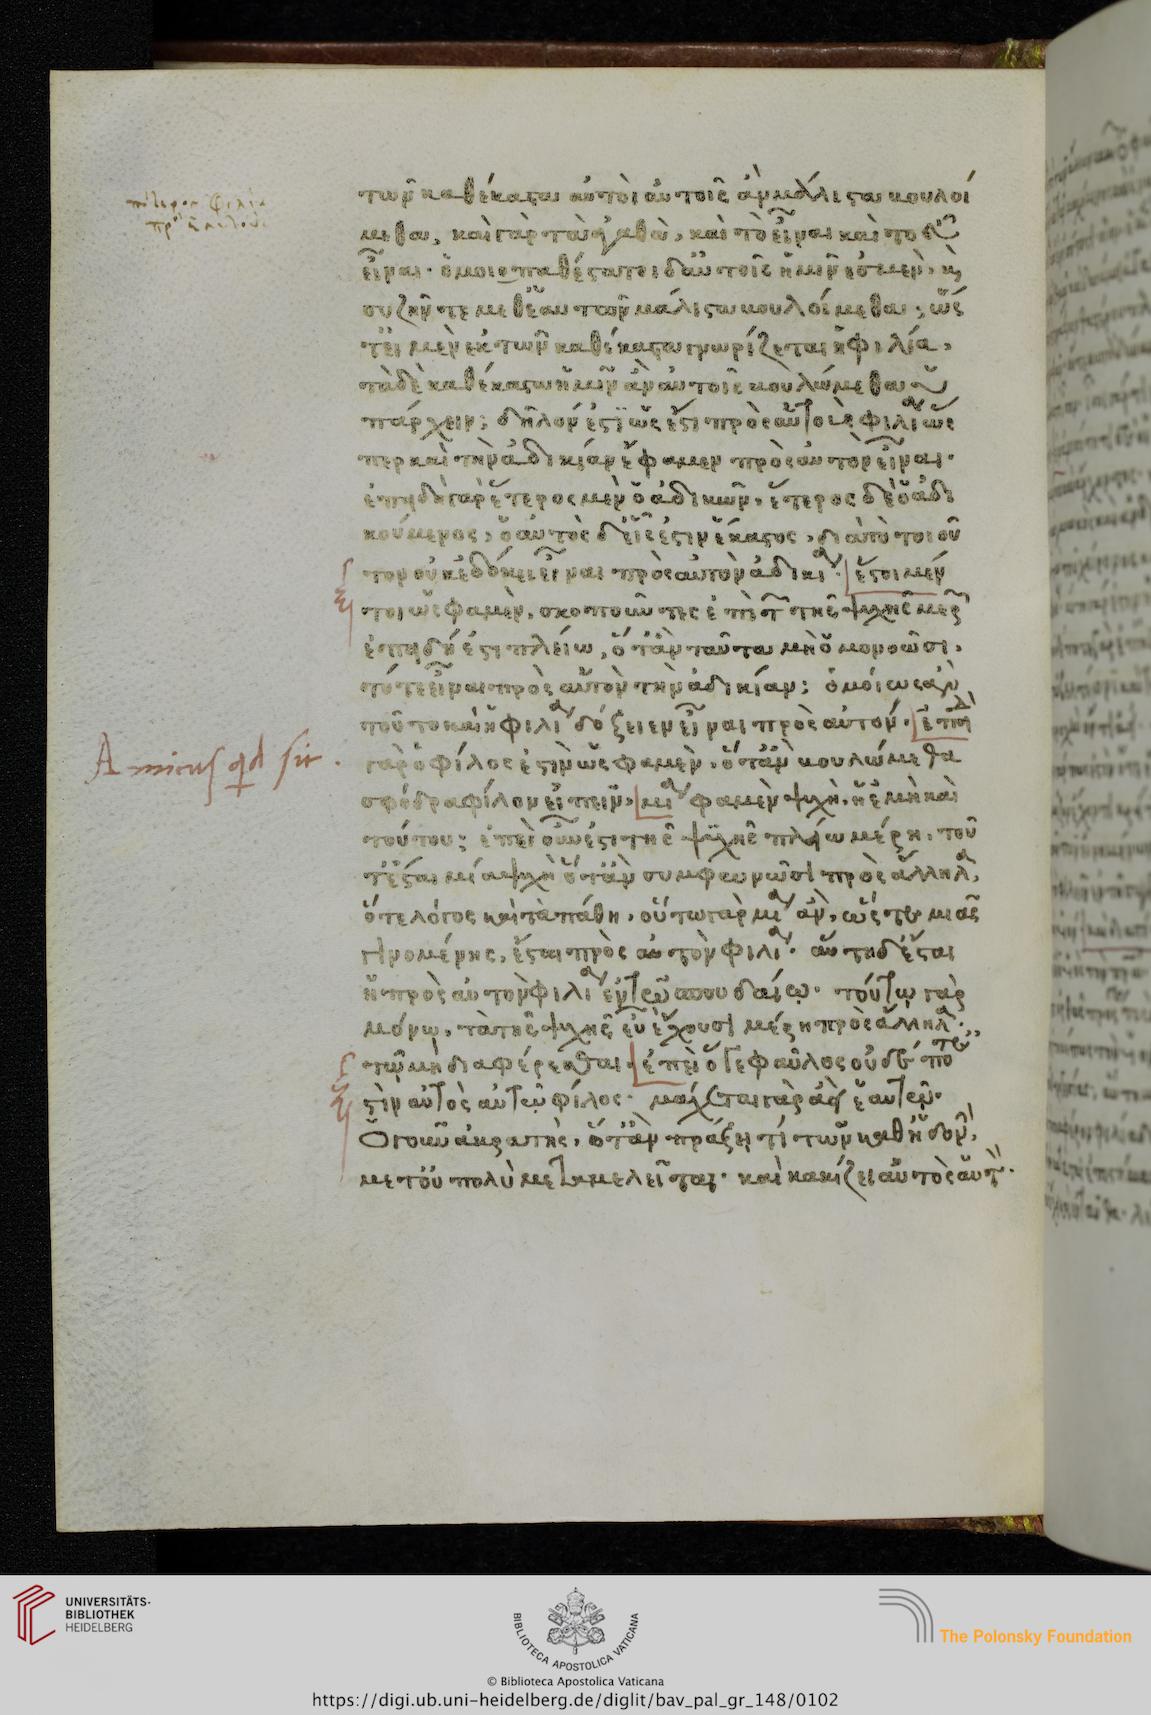 πότερον φιλία
πρὸς
των καθέκαστα αὐτοὶ αὑτοῖς ἂν μάλιστα βουλοί
μεθα, καὶ γὰρ τἀγαθὰ, καὶ τὸ εἶναι καὶ τὸ εὖ
εἶναι· ὁμοιοπαθέστατοι δ' αὑτοῖς ἡμῖν ἐσμὲν, κ
συζῆν τε μεθ' ἑαυτῶν μάλιστα βουλόμεθα, ὥσ
τ' εἰ μὲν ἐκ τῶν καθέκαστα γνωρίζεται ἡ φιλία,
τὰ δὲ καθέκαστα ἡμῖν ἂν αὐτοῖς βουλώμεθα ὑ
πάρχειν; δῆλον ἐστὶ ὡς ἔστι πρὸς αὑτοὺς φιλία ὥσ
περ καὶ τὴν ἀδικίαν ἔφαμεν πρὸς αὑτὸν εἶναι·
ἐπειδὴ γὰρ ἕτερος μὲν ὁ ἀδικῶν, ἕτερος δὲ ὁ ἀδι
κούμενος, ὁ αὐτὸς δ' εἷς ἐστιν ἕκαστος, διὰ τὸ τοιοῦ
τον οὐκ ἐδόκει εἶναι πρὸς αὑτὸν ἀδικία· ἔστι μέν
τοι ὡς ἔφαμεν, σκοποῦν τες ἐπὶ τ τῆς ψυχῆς μερ
ἐπειδή ἐστι πλείω, ὅταν ταῦτα μὴ ὁμονοῶσι,
τότε εἶναι πρὸς αὑτὸν τὴν ἀδικίαν; ὁμοίως ἄρα
τοῦτο καὶ ἡ φιλία δόξειεν εἶναι πρὸς αὑτόν· ἐπειδὴ
γὰρ ὁ φίλος ἐστὶν ὡς φαμὲν, ὅταν βουλώμεθα
σφόδρα φίλον εἰπεῖν, μία φαμὲν ψυχὴ, ἡ ἐμὴ καὶ
τούτου; ἐπεὶ οὖν ἐστι τῆς ψυχῆς πλείω μέρη, τοῦ
τ' ἔσται μία ψυχὴ ὅταν συμφωνῶσι πρὸς ἄλληλα,
ὅ τε λόγος καὶ τὰ πάθη, οὕτω γὰρ μία ἂν, ὥστε μιᾶς
γενομένης, ἔσται πρὸς αὑτὸν φιλία· αὕτη δ' ἔσται
ἡ πρὸς αὑτὸν φιλία ἐν τῷ σπουδαίῳ· τούτῳ γὰρ
μόνῳ, τὰ τῆς ψυχῆς εὖ ἔχουσι μέρη πρὸς ἄλληλα·
τῷ μὴ διαφέρεσθαι· ἐπεὶ ὅ γε φαῦλος οὐδέποτέ
στιν αὐτὸς αὑτῷ φίλος· μάχεται γὰρ ἀεὶ ἑαυτῷ·
Ὁ γοῦν ἀκρατὴς, ὅταν πράξῃ τί τῶν καθ' ἡδονὴν,
μετ' οὐ πολὺ μεταμελεῖται· καὶ κακίζει αὐτὸς αὑτὸν·
Amicus qd sit.
UNIVERSITÄTS-
BIBLIOTHEK
HEIDELBERG
BIBLIOTECA APOSTOLICA VATICANA
© Biblioteca Apostolica Vaticana
The Polonsky Foundation
https://digi.ub.uni-heidelberg.de/diglit/bav_pal_gr_148/0102